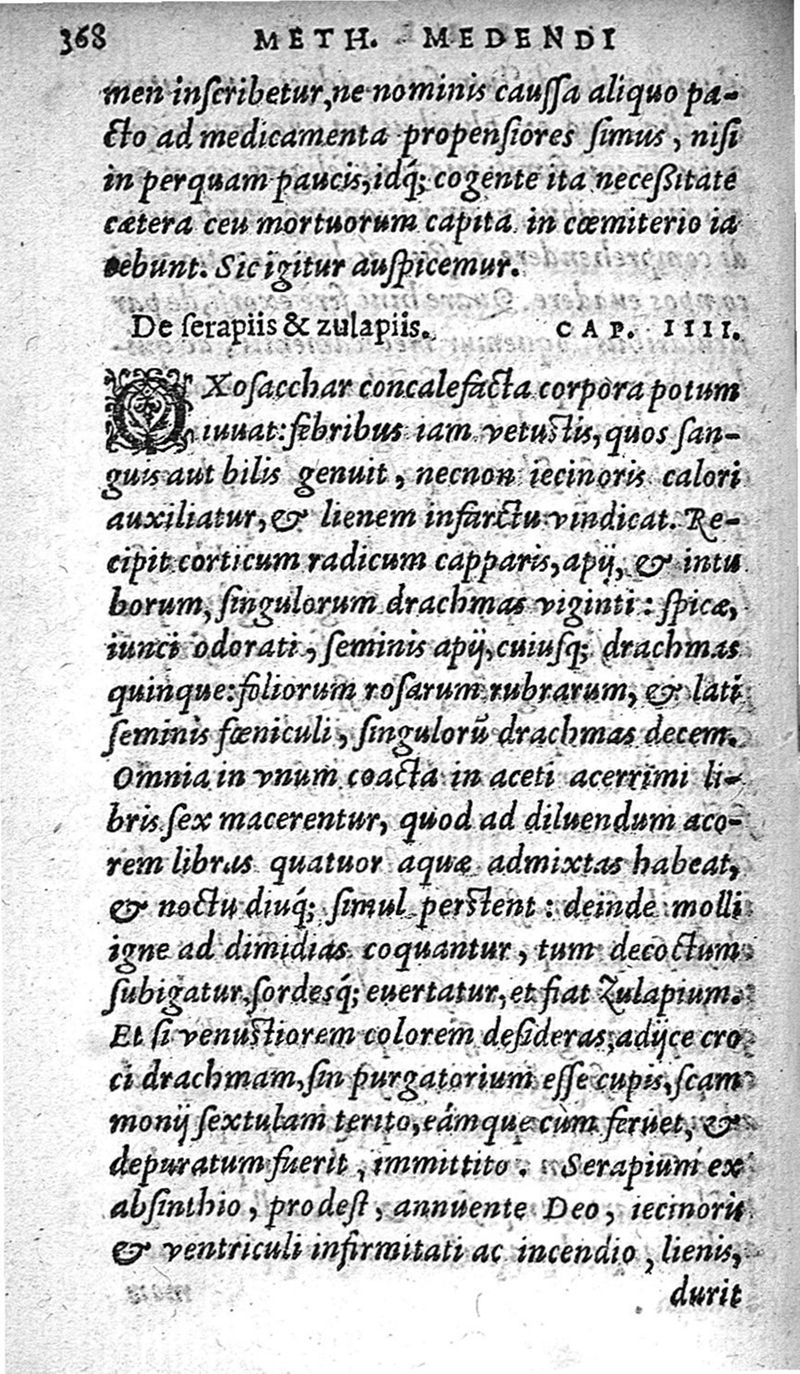 368 METH. MEDENDI
men inſcribetur, ne nominis cauſſa aliquo pa-
cto ad medicamenta propenſiores ſimus, niſi
in perquam paucis, idq́; cogente ita neceßitate
cætera ceu mortuorum capita in cœmiterio ia
cebunt. Sic igitur auſpicemur.
De ſerapiis & zulapiis. CAP. IIII.
OXoſacchar concalefacta corpora potum
iuuat: febribus iam vetuſtis, quos ſan-
guis aut bilis genuit, necnon iecinoris calori
auxiliatur, & lienem infarctu vindicat. Re-
cipit corticum radicum capparis, apij, & intu
borum, ſingulorum drachmas viginti: ſpicæ,
iunci odorati, ſeminis apij, cuiuſq; drachmas
quinque: foliorum roſarum rubrarum, & lati
ſeminis fœniculi, ſingulorū drachmas decem.
Omnia in vnum coacta in aceti acerrimi li-
bris ſex macerentur, quod ad diluendum aco-
rem libras quatuor aquæ admixtas habeat,
& noctu diuq́; ſimul perſtent: deinde molli
igne ad dimidias coquantur, tum decoctum
ſubigatur, ſordesq́; euertatur, et fiat Zulapium.
Et ſi venuſtiorem colorem deſideras, adijce cro
ci drachmam, ſin purgatorium eſſe cupis, ſcam
monij ſextulam terito, eámque cùm feruet, &
depuratum fuerit, immittito. Serapium ex
abſinthio, prodeſt, annuente Deo, iecinoris
& ventriculi infirmitati ac incendio, lienis,
durit